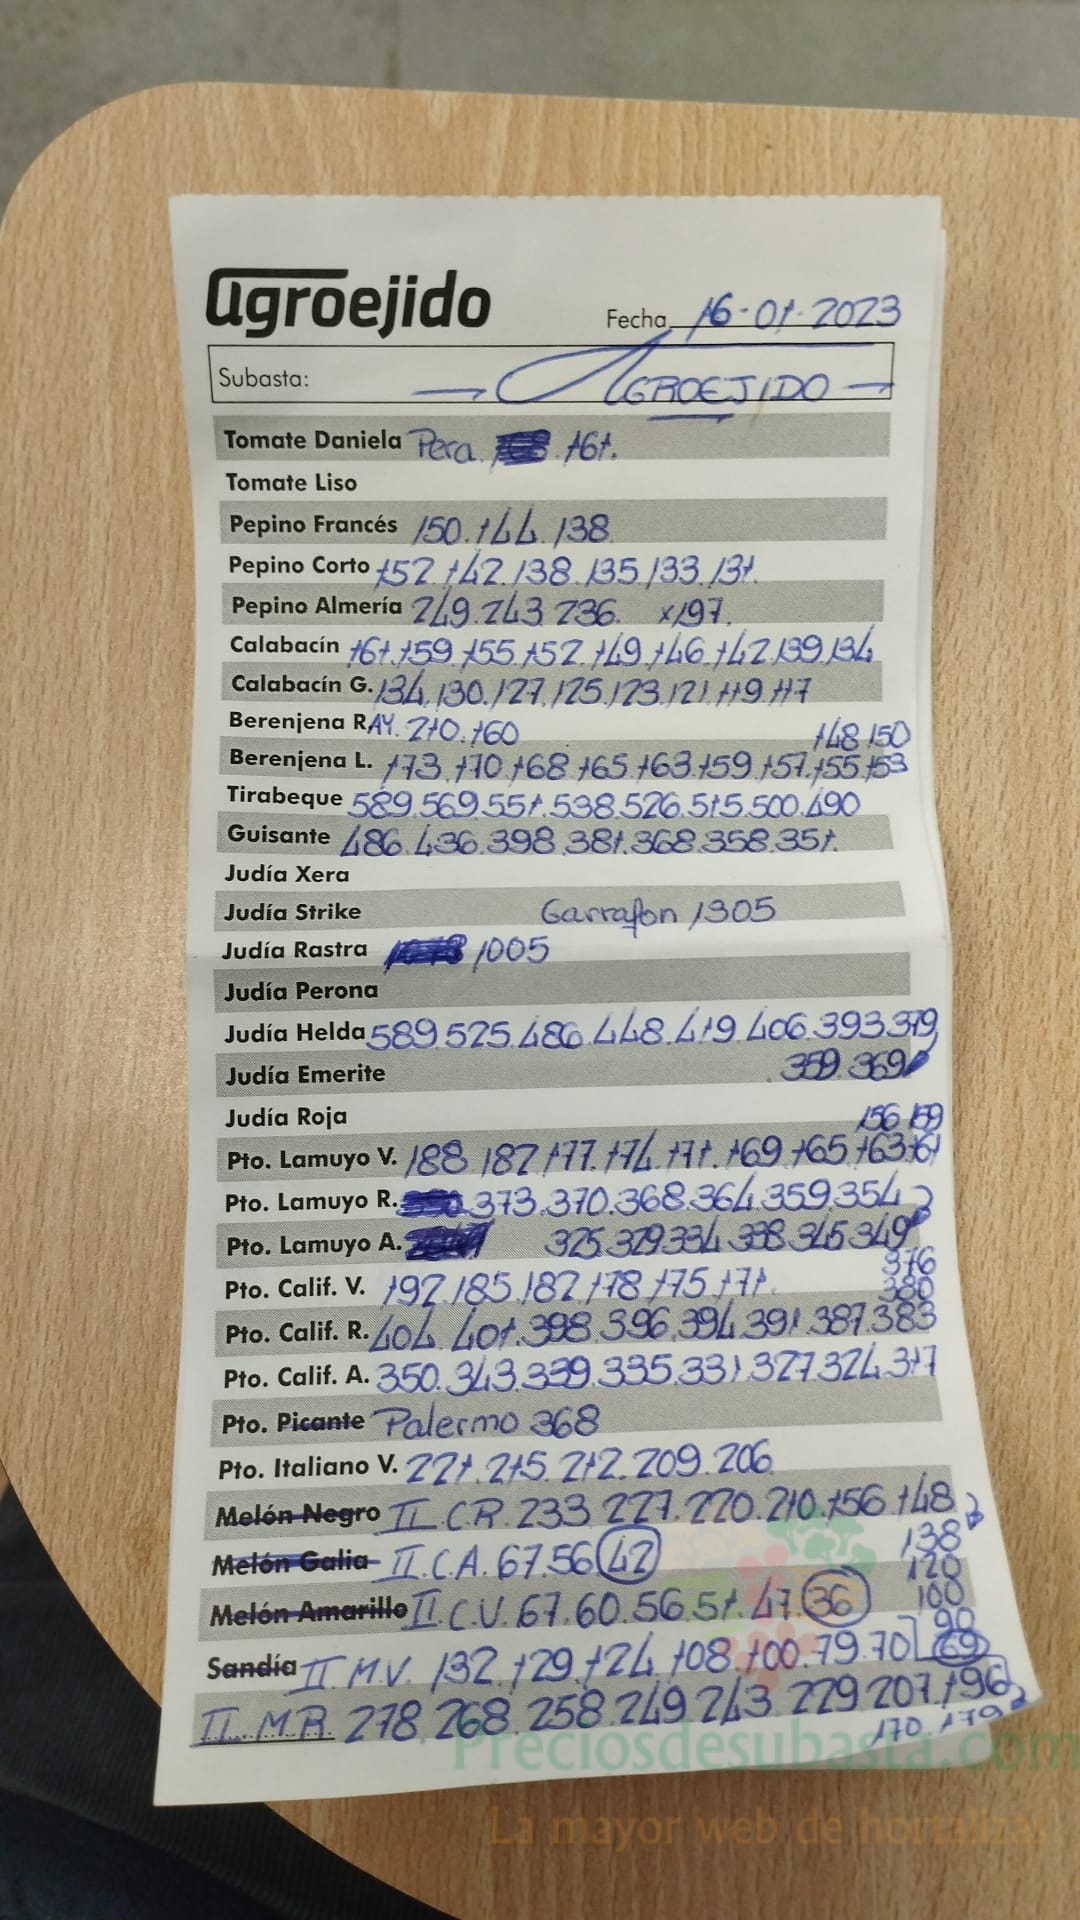 agroejido
Fecha 16-01-2023
Subasta: AGROEJIDO
Tomate Daniela Pera. 161.
Tomate Liso
Pepino Francés 150.144.138
Pepino Corto 152.142.138.135.133.131.
Pepino Almería 249.243.236. x197.
Calabacín 161.159.155.152.149.146.142.139.134
Calabacín G. 134.130.127.125.123.121.119.117
Berenjena RAY. 210.160
148.150
Berenjena L. 173.170.168.165.163.159.157.155.153
Tirabeque 589.569.551.538.526.515.500.490
Guisante 486.436.398.381.368.358.351.
Judía Xera
Judía Strike Garrafon 1305
Judía Rastra 1005
Judía Perona
Judía Helda 589.525.486.448.419.406.393.379
Judía Emerite 359.369
Judía Roja
156.159
Pto. Lamuyo V. 188.182.177.174.171.169.165.163.161
Pto. Lamuyo R. 373.370.368.364.359.354
Pto. Lamuyo A. 325.329.334.338.345.349
376
Pto. Calif. V. 192.185.182.178.175.171.
380
Pto. Calif. R. 404.401.398.396.394.391.387.383
Pto. Calif. A. 350.343.339.335.331.327.324.317
Pto. Picante Palermo 368
Pto. Italiano V. 221.215.212.209.206
Melón Negro II.C.R. 233.227.220.210.156.148
138
Melón Galia II.C.A. 67.56.42
120
100
Melón Amarillo II.C.V. 67.60.56.51.47.36
90
Sandía II.M.V. 132.129.124.108.100.79.70 69
II.M.R. 278.268.258.249.243.229.207.196
170.179
Preciosdesubasta.com
La mayor web de hortalizas